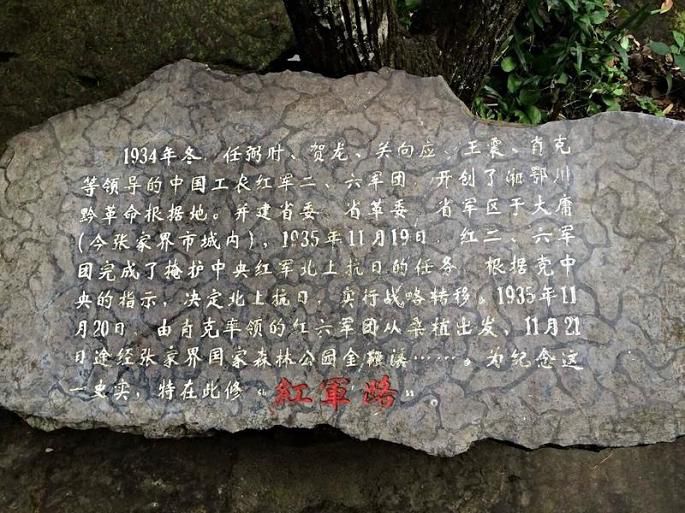 1934年冬，任弼时、贺龙、关向应、王震、肖克
等领导的中国工农红军二、六军团，开创了湘鄂川
黔革命根据地。并建省委，省革委，省军区于大庸
(今张家界市城内)，1935年11月19日，红二、六军
团完成了掩护中央红军北上抗日的任务，根据党中
央的指示，决定北上抗日，实行战略转移。1935年11
月20日，由肖克率领的红六军团从桑植出发，11月21
日途经张家界国家森林公园金鞭溪……。为纪念这
一史实，特在此修“紅軍路”。